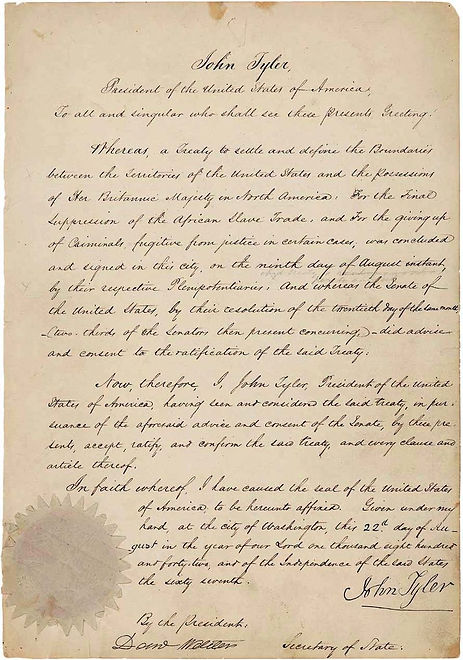 John Tyler,
President of the United States of America,
To all and singular who shall see these Presents, Greeting!
Whereas, a Treaty to settle and define the Boundaries
between the Territories of the United States and the Possessions
of Her Britannic Majesty in North America: For the Final
Suppression of the African Slave Trade: and For the giving up
of Criminals, fugitive from justice in certain cases, was concluded
and signed in this city, on the ninth day of August instant,
by their respective Plenipotentiaries: And whereas the Senate of
the United States, by their resolution of the twentieth day of the same month
(two-thirds of the Senators then present concurring,) did advise
and consent to the ratification of the said Treaty:
Now, therefore, I, John Tyler, President of the United
States of America, having seen and considered the said treaty, in pur-
suance of the aforesaid advice and consent of the Senate, by these pre-
sents, accept, ratify, and confirm the said treaty, and every clause and
article thereof.
In faith whereof, I have caused the seal of the United States
of America, to be hereunto affixed. Given under my
hand, at the city of Washington, this 22d day of Au-
gust in the year of our Lord one thousand eight hundred
and forty-two, and of the Independence of the said States
the sixty seventh.
John Tyler
By the President,
Danl Webster
Secretary of State.